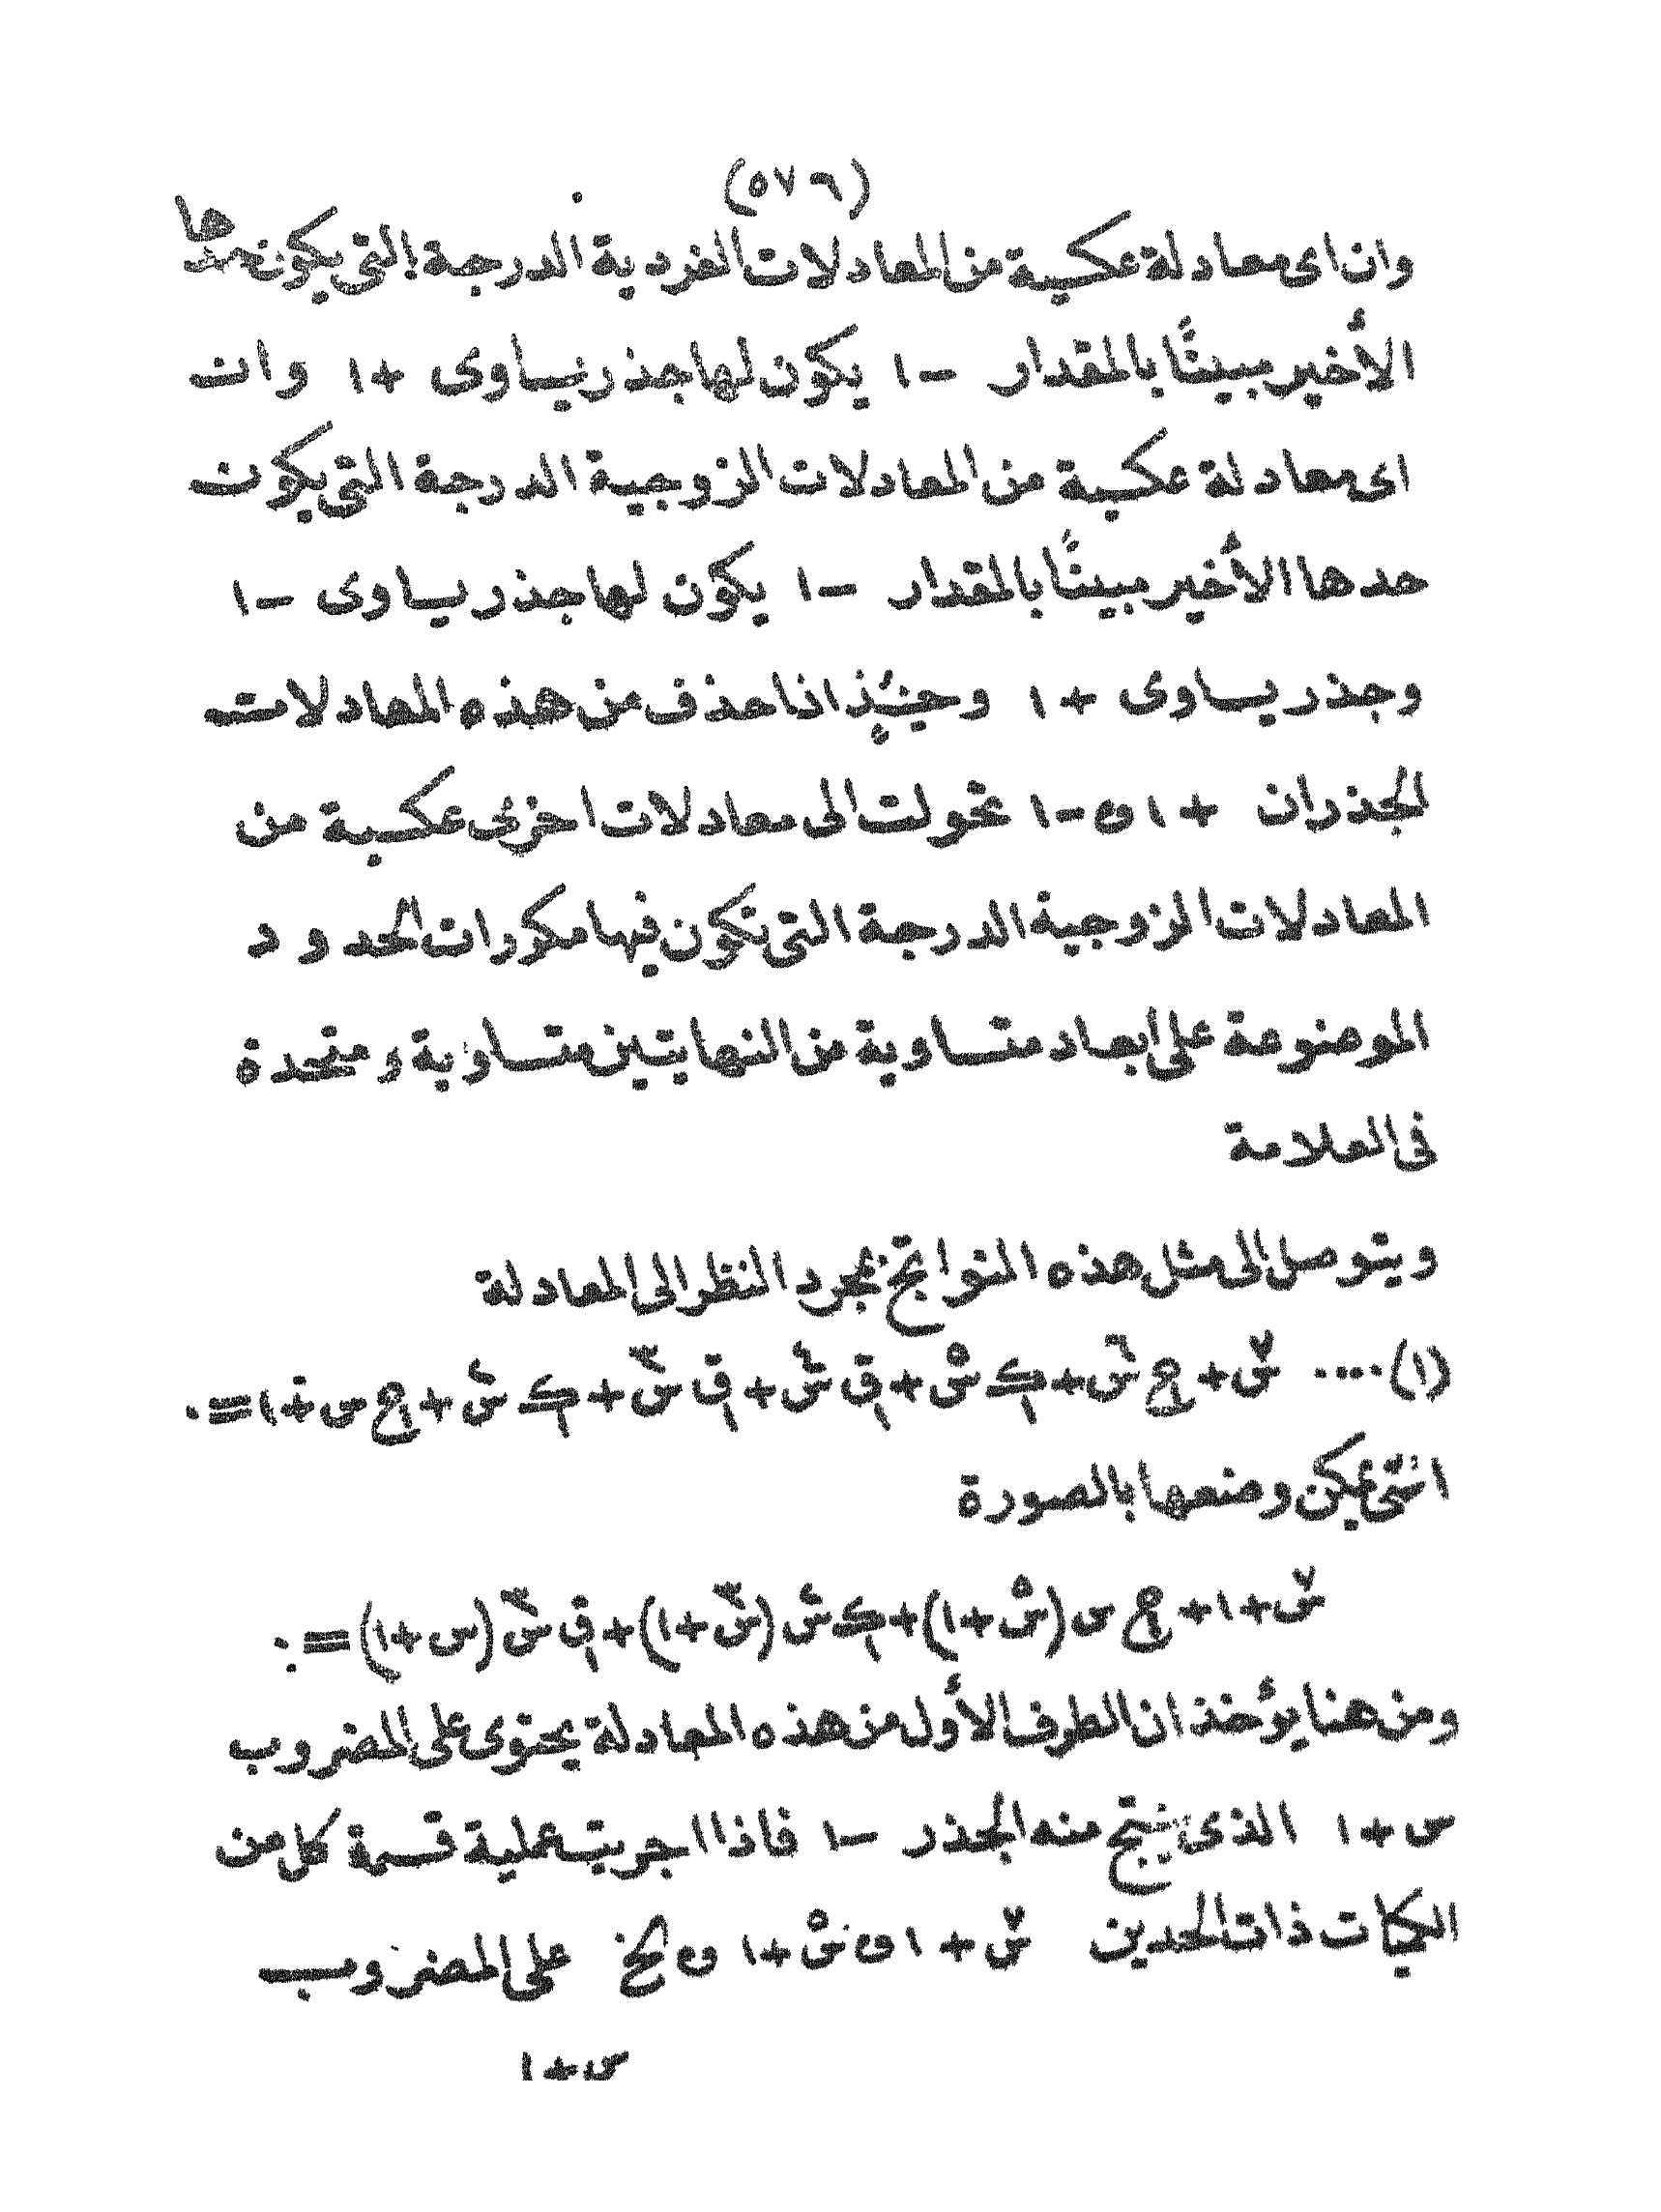 (٥٧٦)
وان اى معادلة عكسية من المعادلات الفردية الدرجة التى يكون حدها
الأخير مبينًا بالمقدار -١ يكون لها جذر يساوى +١ وان
اى معادلة عكسية من المعادلات الزوجية الدرجة التى يكون
حدها الأخير مبينًا بالمقدار -١ يكون لها جذر يساوى -١
وجذر يساوى +١ وحينئذٍ اذا حذف من هذه المعادلات
الجذران +١ و -١ تحولت الى معادلات اخرى عكسية من
المعادلات الزوجية الدرجة التى تكون فيها مكررات الحدود
الموضوعة على ابعاد متساوية من النهايتين متساوية ومتحدة
فى العلامة
ويتوصل الى مثل هذه النواتج بمجرد النظر الى المعادلة
(١)···· س٧+ح١س٦+ك١س٥+ق١س٤+ق١س٣+ك١س٢+ح١س+١=٠
التى يمكن وضعها بالصورة
س٧+١+ح١س(س٥+١)+ك١س٢(س٣+١)+ق١س٣(س+١)=٠
ومن هنا يؤخذ ان الطرف الأول من هذه المعادلة يحتوى على المضروب
س+١ الذى ينتج منه الجذر -١ فاذا اجريت عملية قسمة كل من
الكميات ذات الحدين س٧+١ و س٥+١ و الخ على المضروب
س+١